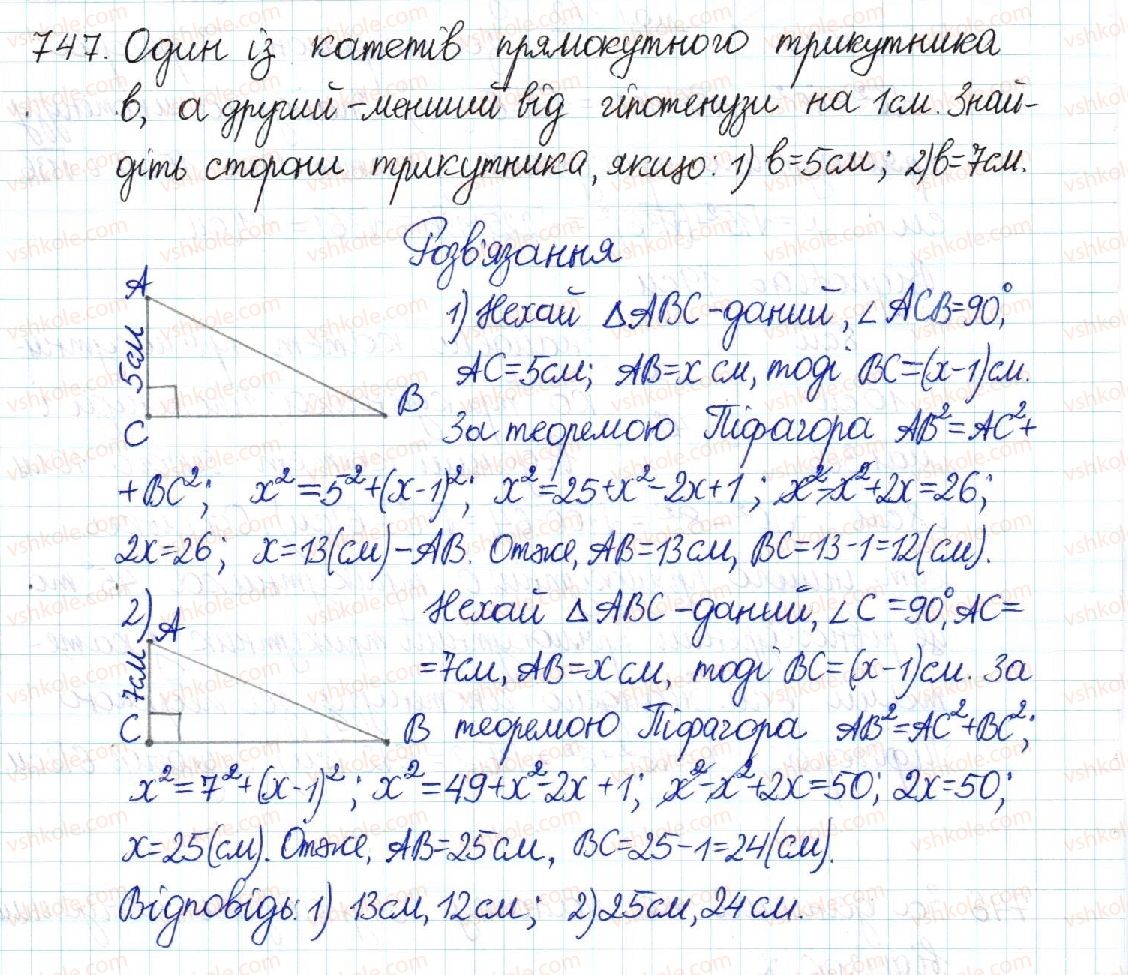 747. Один із катетів прямокутного трикутника
в, а другий - менший від гіпотенузи на 1см. Знай-
діть сторони трикутника, якщо: 1) в=5см; 2) в=7см.
Розв'язання
A
5см
C
B
1) Нехай △ABC - даний, ∠ACB=90°,
AC=5см; AB=x см, тоді BC=(x-1)см.
За теоремою Піфагора AB²=AC²+
+BC²; x²=5²+(x-1)²; x²=25+x²-2x+1; x²-x²+2x=26;
2x=26; x=13(см)-AB. Отже, AB=13см, BC=13-1=12(см).
2) A
7см
C
B
Нехай △ABC - даний, ∠C=90°, AC=
=7см, AB=x см, тоді BC=(x-1)см. За
теоремою Піфагора AB²=AC²+BC²;
x²=7²+(x-1)²; x²=49+x²-2x+1; x²-x²+2x=50; 2x=50;
x=25(см). Отже, AB=25см, BC=25-1=24(см).
Відповідь: 1) 13см, 12см; 2) 25см, 24см.
vshkole.com